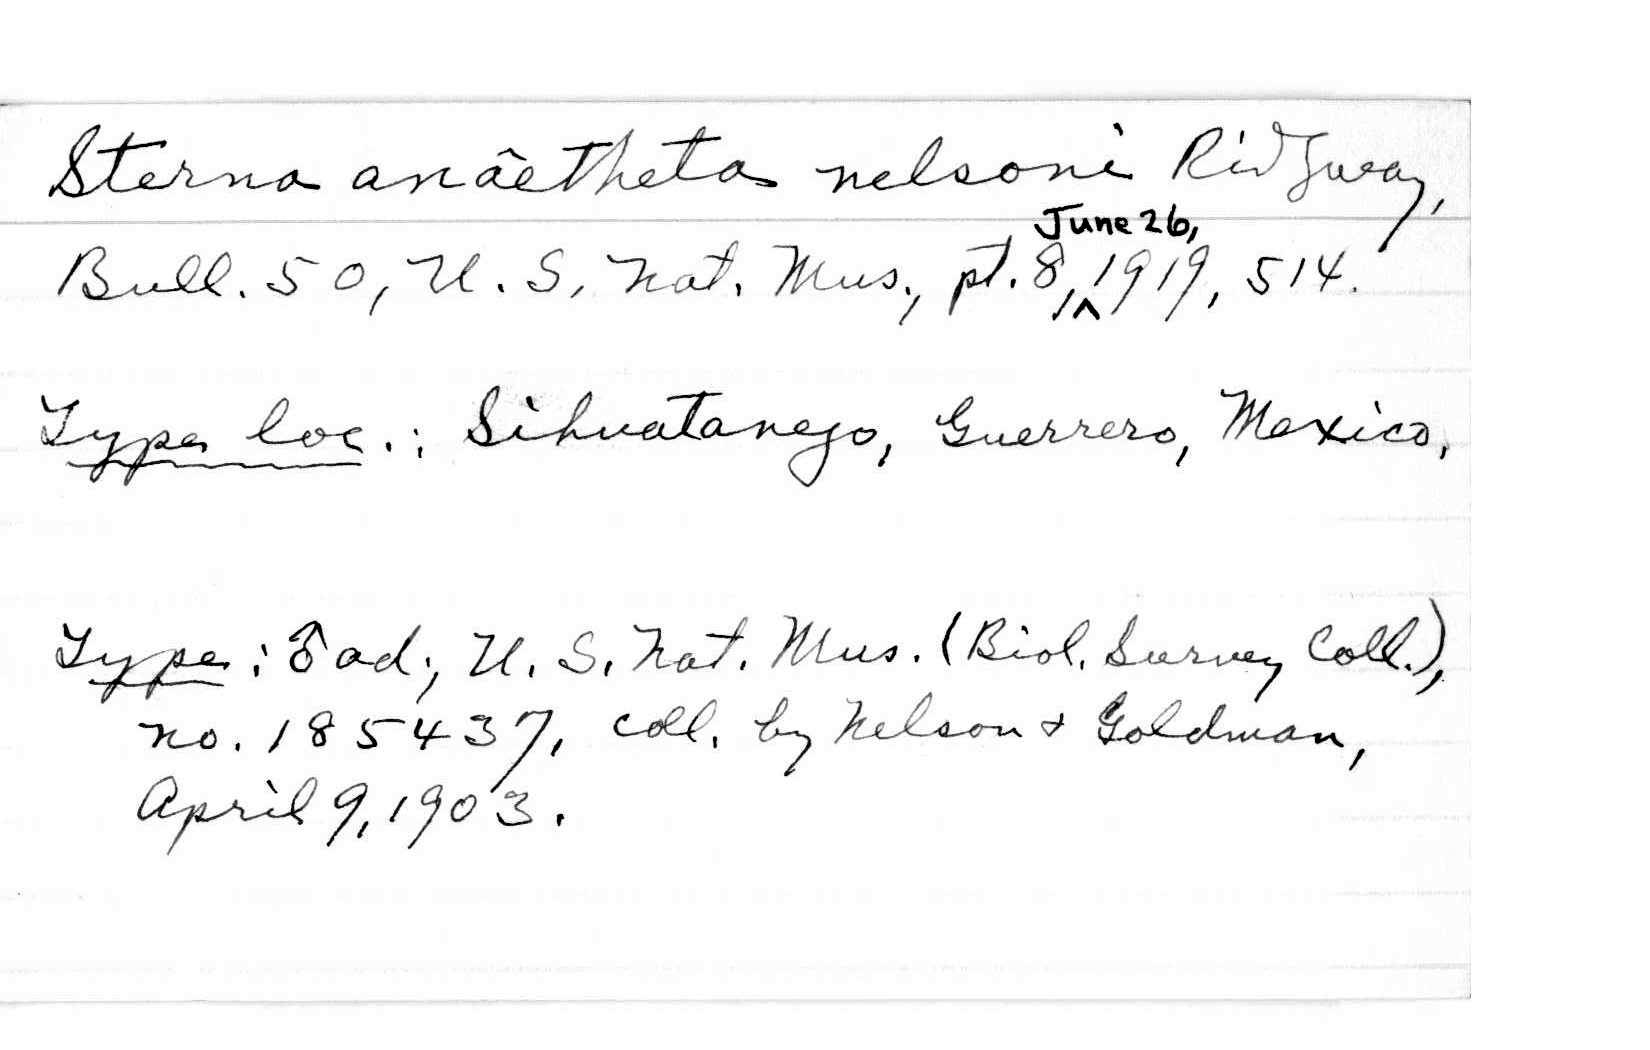 Sterna anäetheta nelsoni Ridgway,
Bull. 50, U. S. Nat. Mus., pt. 8, June 26, 1919, 514.
Type loc.: Sihuatanejo, Guerrero, Mexico,
Type: ♂ ad., U. S. Nat. Mus. (Biol. Survey Coll.),
no. 185437, coll. by Nelson & Goldman,
April 9, 1903.